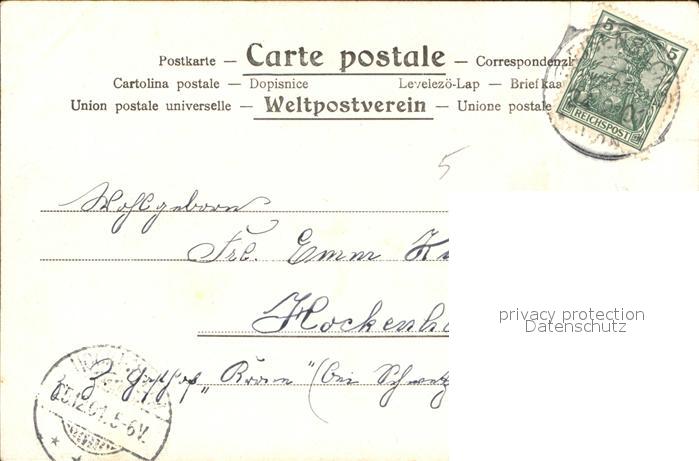 Postkarte — Carte postale — Correspondenzk
Cartolina postale — Dopisnice Levelező-Lap — Briefkaa
Union postale universelle — Weltpostverein — Unione postale
5 5
REICHSPOST
5
Wohlgeboren
Frl. Emm
Hockenh
privacy protection
Datenschutz
Z. Gasthof „Krone" (bei Schwetz
5-6V.